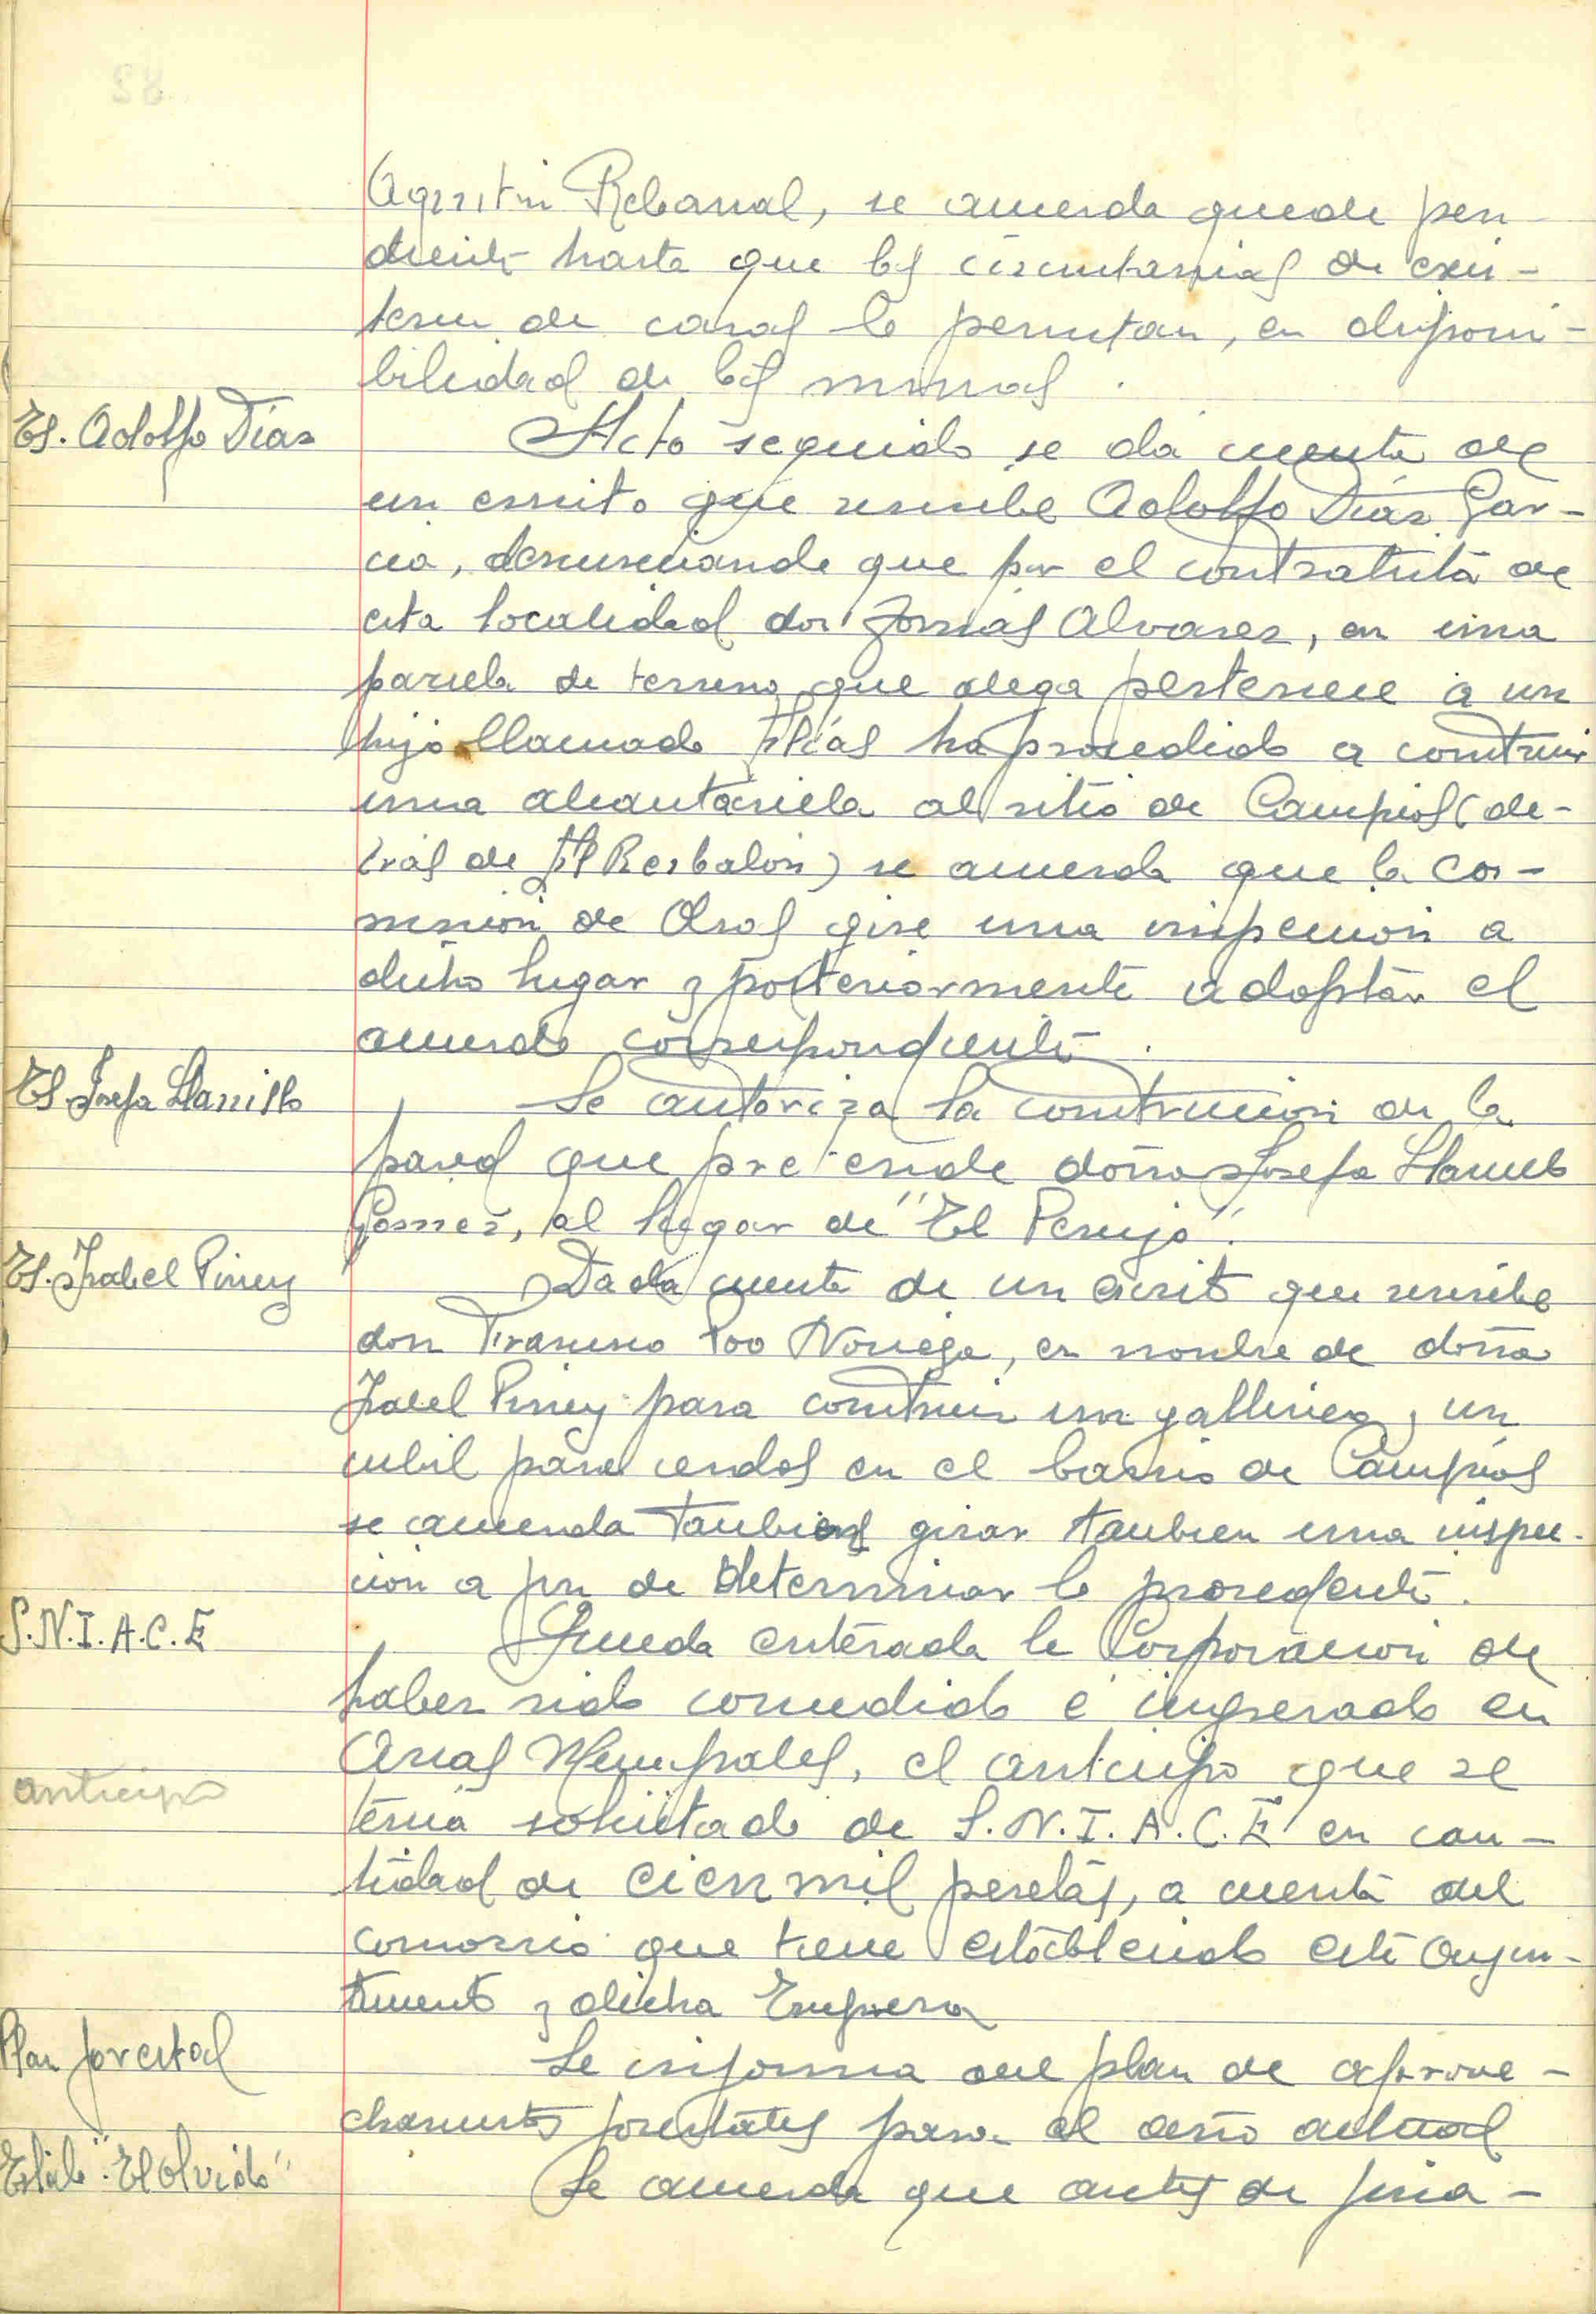 Agustin Rebanal, se acuerda quede pen-
diente hasta que las circunstancias de exis-
tencia de casas lo permitan, en disponi-
bilidad de las mismas.
Es. Adolfo Díaz
Acto seguido se dá cuenta de
un escrito que suscribe Adolfo Díaz Gar-
cia, denunciando que por el contratista de
esta localidad don Tomás Alvarez, en una
parcela de terreno que alega pertenece a un
hijo llamado Elías ha procedido a construir
una alcantarilla al sitio de Campios (de-
trás de El Resbalón) se acuerda que la Co-
mision de Obras gire una inspección a
dicho lugar y posteriormente adoptar el
acuerdo correspondiente.
Es Josefa Llanillo
Se autoriza la construccion de la
pared que pretende doña Josefa Llanillo
Gomez, al lugar de "El Perujo".
Es. Isabel Piney
Dada cuenta de un escrito que suscribe
don Francisco Poo Noriega, en nombre de doña
Isabel Piney para construir un gallinero, un
cubil para cerdos en el barrio de Campios
se acuerda tambien girar tambien una inspec-
cion a fin de determinar lo procedente.
S.N.I.A.C.E
Queda enterada la Corporacion de
haber sido concedido é ingresado en
Arcas Municipales, el anticipo que se
anticipo
tenia solicitado de S.N.I.A.C.E en can-
tidad de cien mil pesetas, a cuenta del
convenio que tiene establecido este Ayun-
tamiento y dicha Empresa
Plan forestal
Se informa del plan de aprove-
chamientos forestales para el año actual
Estab. "El Olvido"
Se acuerda que antes de fina-